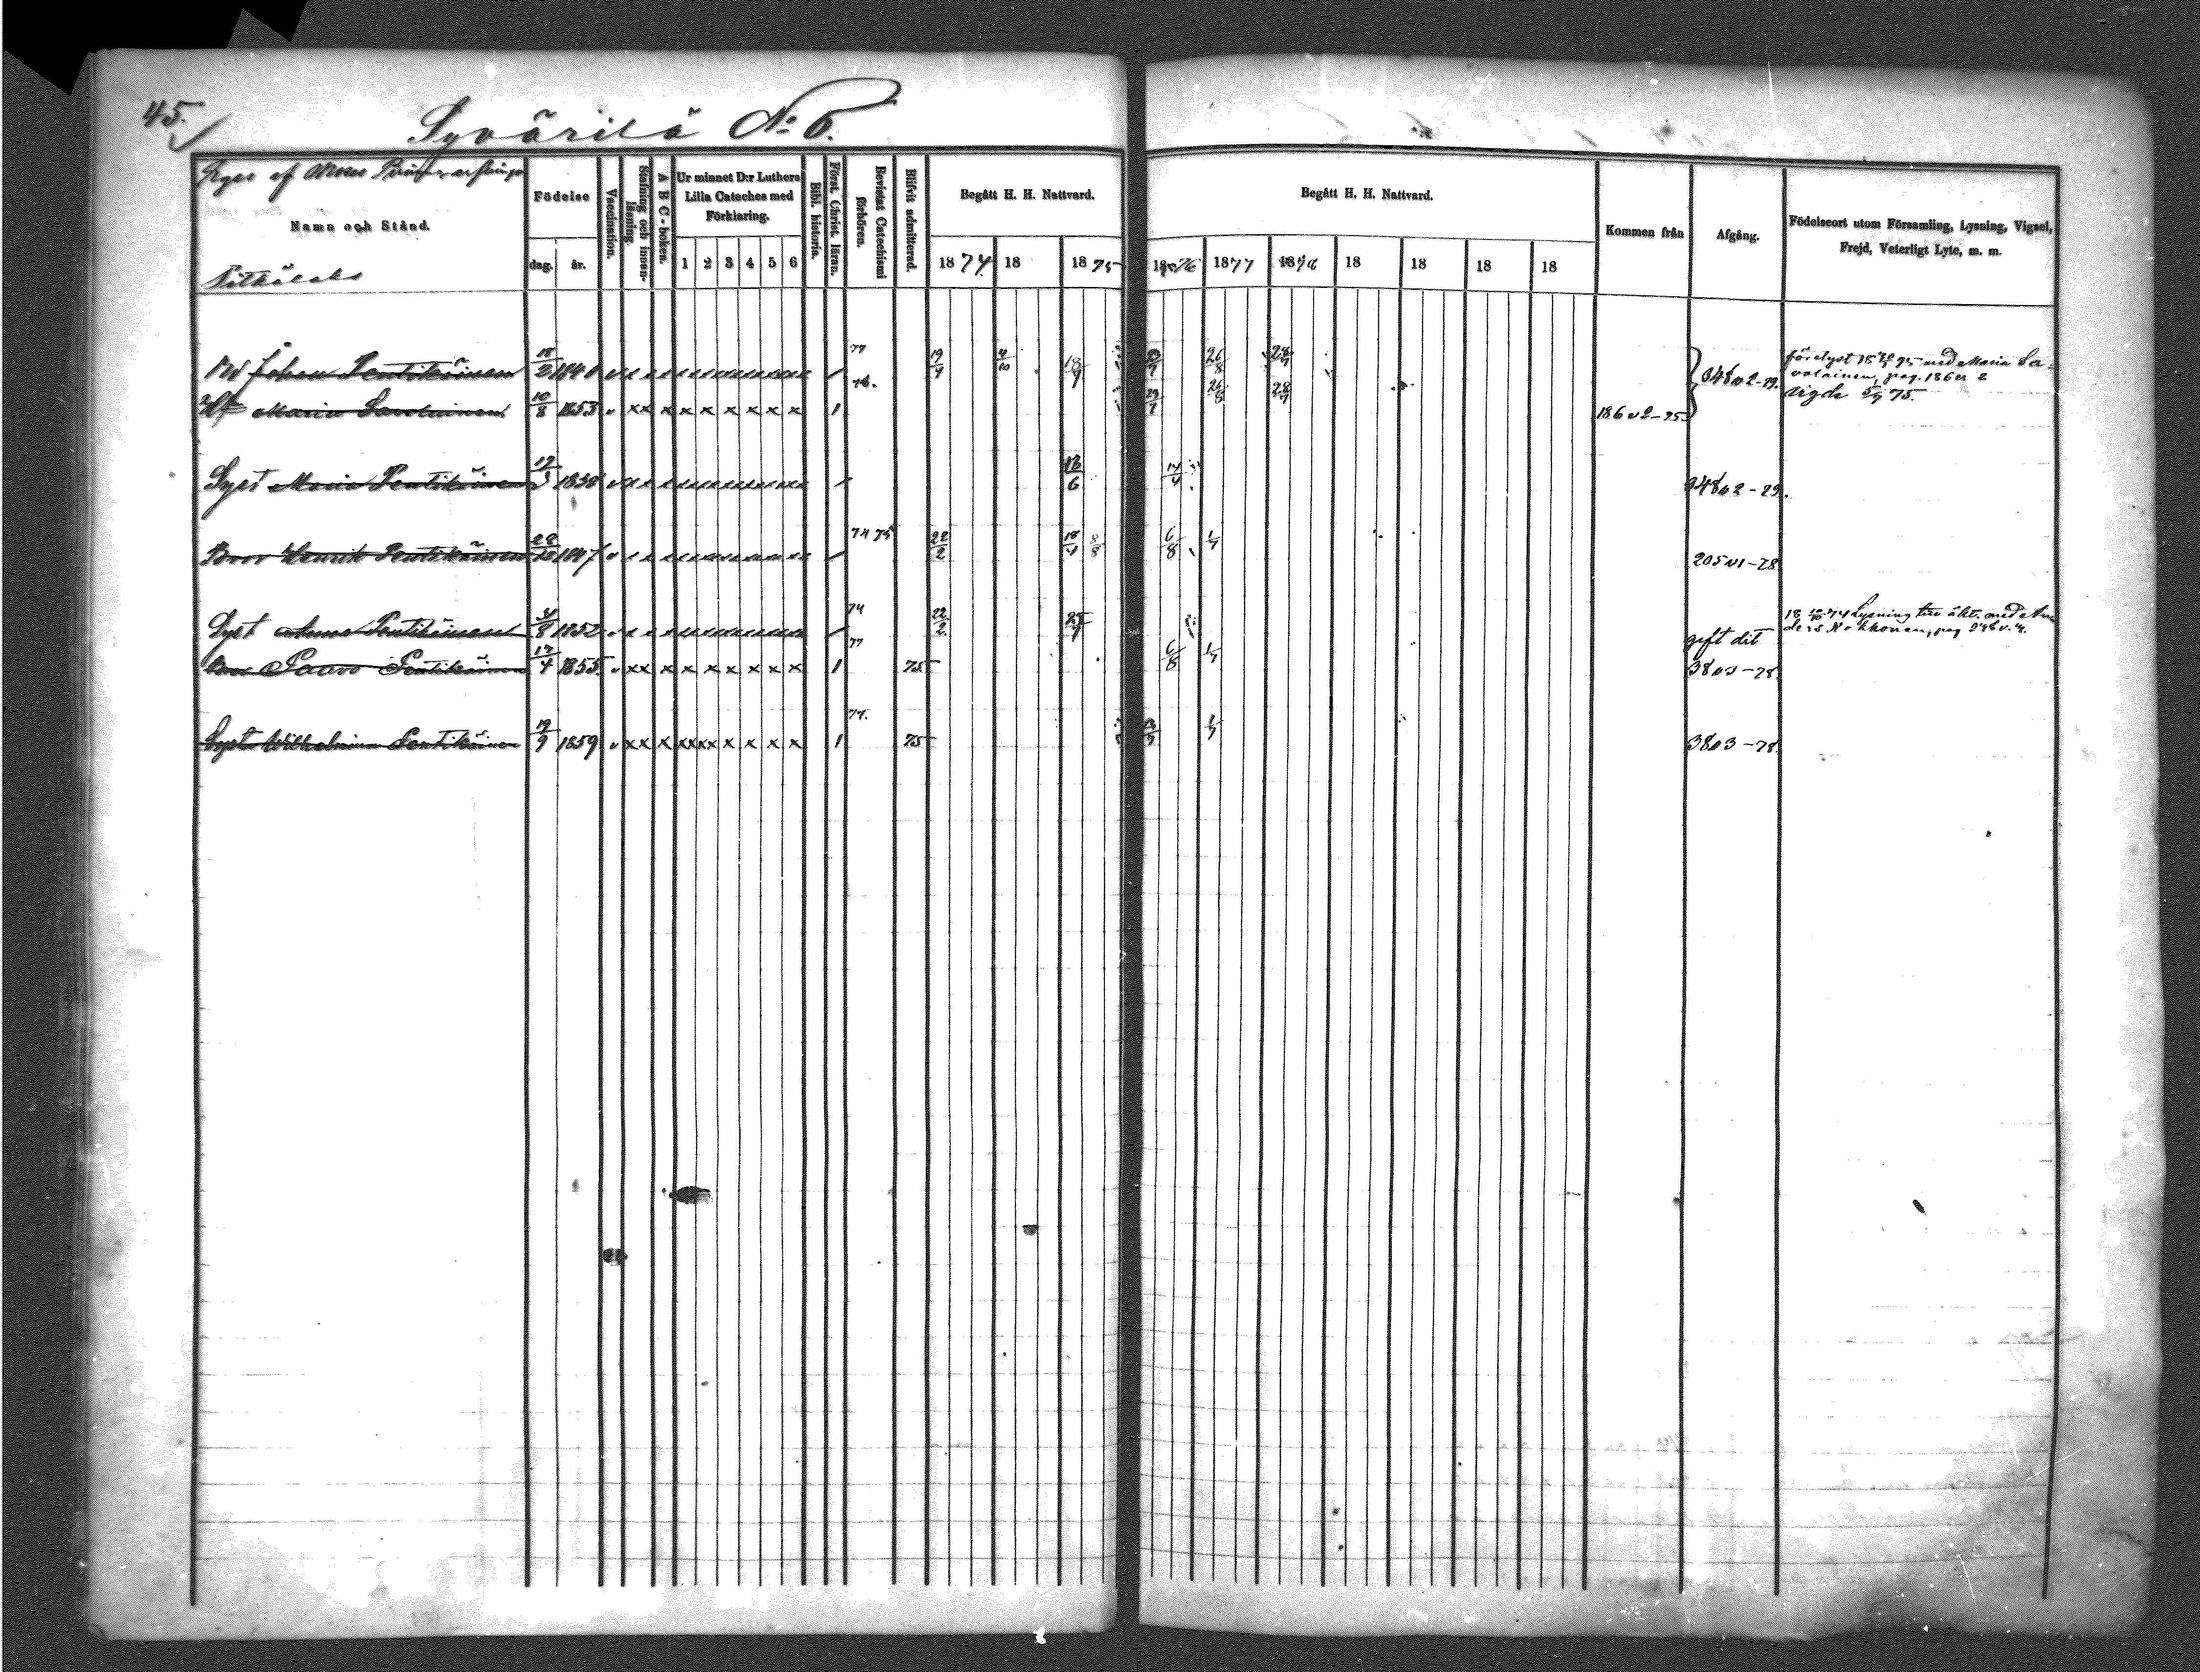 45.
Syvärilä No 6.
Eges af
Namn och Stånd.
Pitkälaks
Födelse
dag. år.
Vaccination.
Stafning och innanläsning.
A B C-boken.
Ur minnet D:r Luthers Lilla Cateches med Förklaring.
1 2 3 4 5 6
Bibl. historia.
Först. Christ. läran.
Bevistat Catechismi förhören.
Blifvit admitterad.
Begått H. H. Nattvard.
1874 18 1875
Begått H. H. Nattvard.
1876 1877 1878 18 18 18 18
Kommen från
Afgång.
Födelseort utom Församling, Lysning, Vigsel, Frejd, Veterligt Lyte, m. m.
Johan Pentikäinen 18/2 77 19/4 4/10 18/4 26/8 28/4 348 v 2-79. med Maria Savolainen, pag. 186 v 2 Vigde 75.
Maria Savolainen 10/8 1853 26/8 28/4 186 v 2-75
Syst Maria Pentikäinen 1858 13/6 14/4 348 v 2-79.
Bror Henrik Pentikäinen 28/12 1847 74 75 22/2 18/4 8/8 6/8 1/7 205 v 1-78
Syst Anna Pentikäinen 1852 74 22/2 gift dit Lysning till äkt. med Anders Kokkonen, pag
Bror Paavo Pentikäinen 17/4 1855 77 75 6/8 1/7 38 v 3-78.
Syst Wilhelmina Pentikäinen 19/9 1859 77. 75 1/7 38 v 3-78.